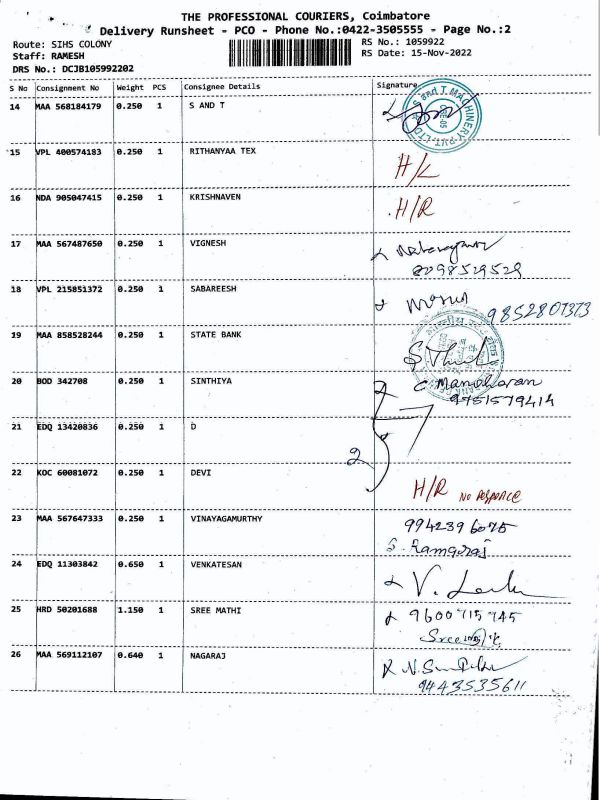 THE PROFESSIONAL COURIERS, Coimbatore
Delivery Runsheet - PCO - Phone No.:0422-3505555 - Page No.:2
Route: SIHS COLONY RS No.: 1059922
Staff: RAMESH RS Date: 15-Nov-2022
DRS No.: DCJB105992202
S No Consignment No Weight PCS Consignee Details Signature
14 MAA 568184179 0.250 1 S AND T
15 VPL 400574183 0.250 1 RITHANYAA TEX H/L
16 NDA 905047415 0.250 1 KRISHNAVEN H/R
17 MAA 567487650 0.250 1 VIGNESH
8098529529
18 VPL 215851372 0.250 1 SABAREESH
9852807373
19 MAA 858528244 0.250 1 STATE BANK
20 BOD 342708 0.250 1 SINTHIYA C Manoharan
9751579414
21 EDQ 13420836 0.250 1 D
22 KOC 60081072 0.250 1 DEVI H/R No Responce
23 MAA 567647333 0.250 1 VINAYAGAMURTHY 9942396075
S. Ramguraj
24 EDQ 11303842 0.650 1 VENKATESAN
25 HRD 50201688 1.150 1 SREE MATHI 9600715745
26 MAA 569112107 0.640 1 NAGARAJ
9443535611